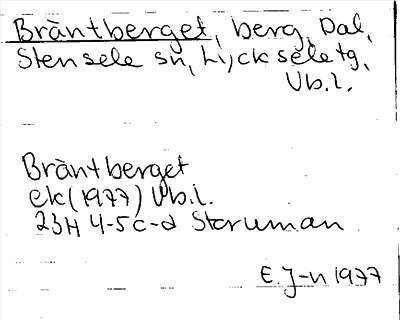 Bräntberget, berg, Dal,
Stensele sn, Lycksele tg,
Vb.l.
Bräntberget
ek (1977) Vb.l.
23H 4-5c-d Storuman
E. J-n 1977